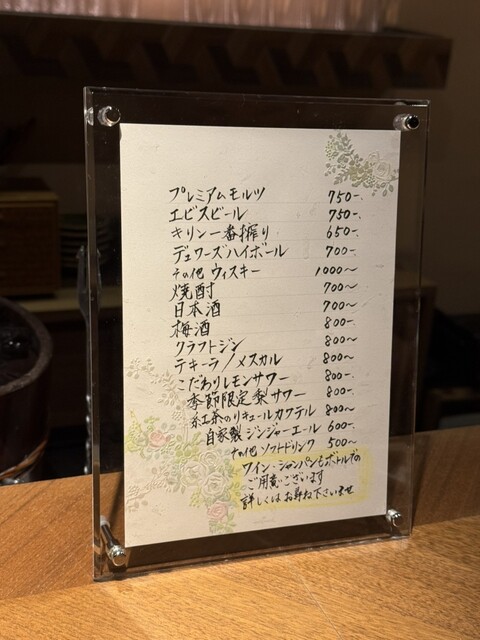 プレミアムモルツ 750-.
エビスビール 750-.
キリン一番搾り 650-.
デュワーズハイボール 700-.
その他 ウィスキー 1000〜
焼酎 700〜
日本酒 700〜
梅酒 800-.
クラフトジン 800〜
テキーラ/メスカル 800〜
こだわりレモンサワー 800-.
季節限定梨サワー 800-.
紅茶のリキュールカクテル 800〜
自家製ジンジャーエール 600-.
その他 ソフトドリンク 500〜
ワイン・シャンパンもボトルでの
ご用意ございます
詳しくはお尋ね下さいませ